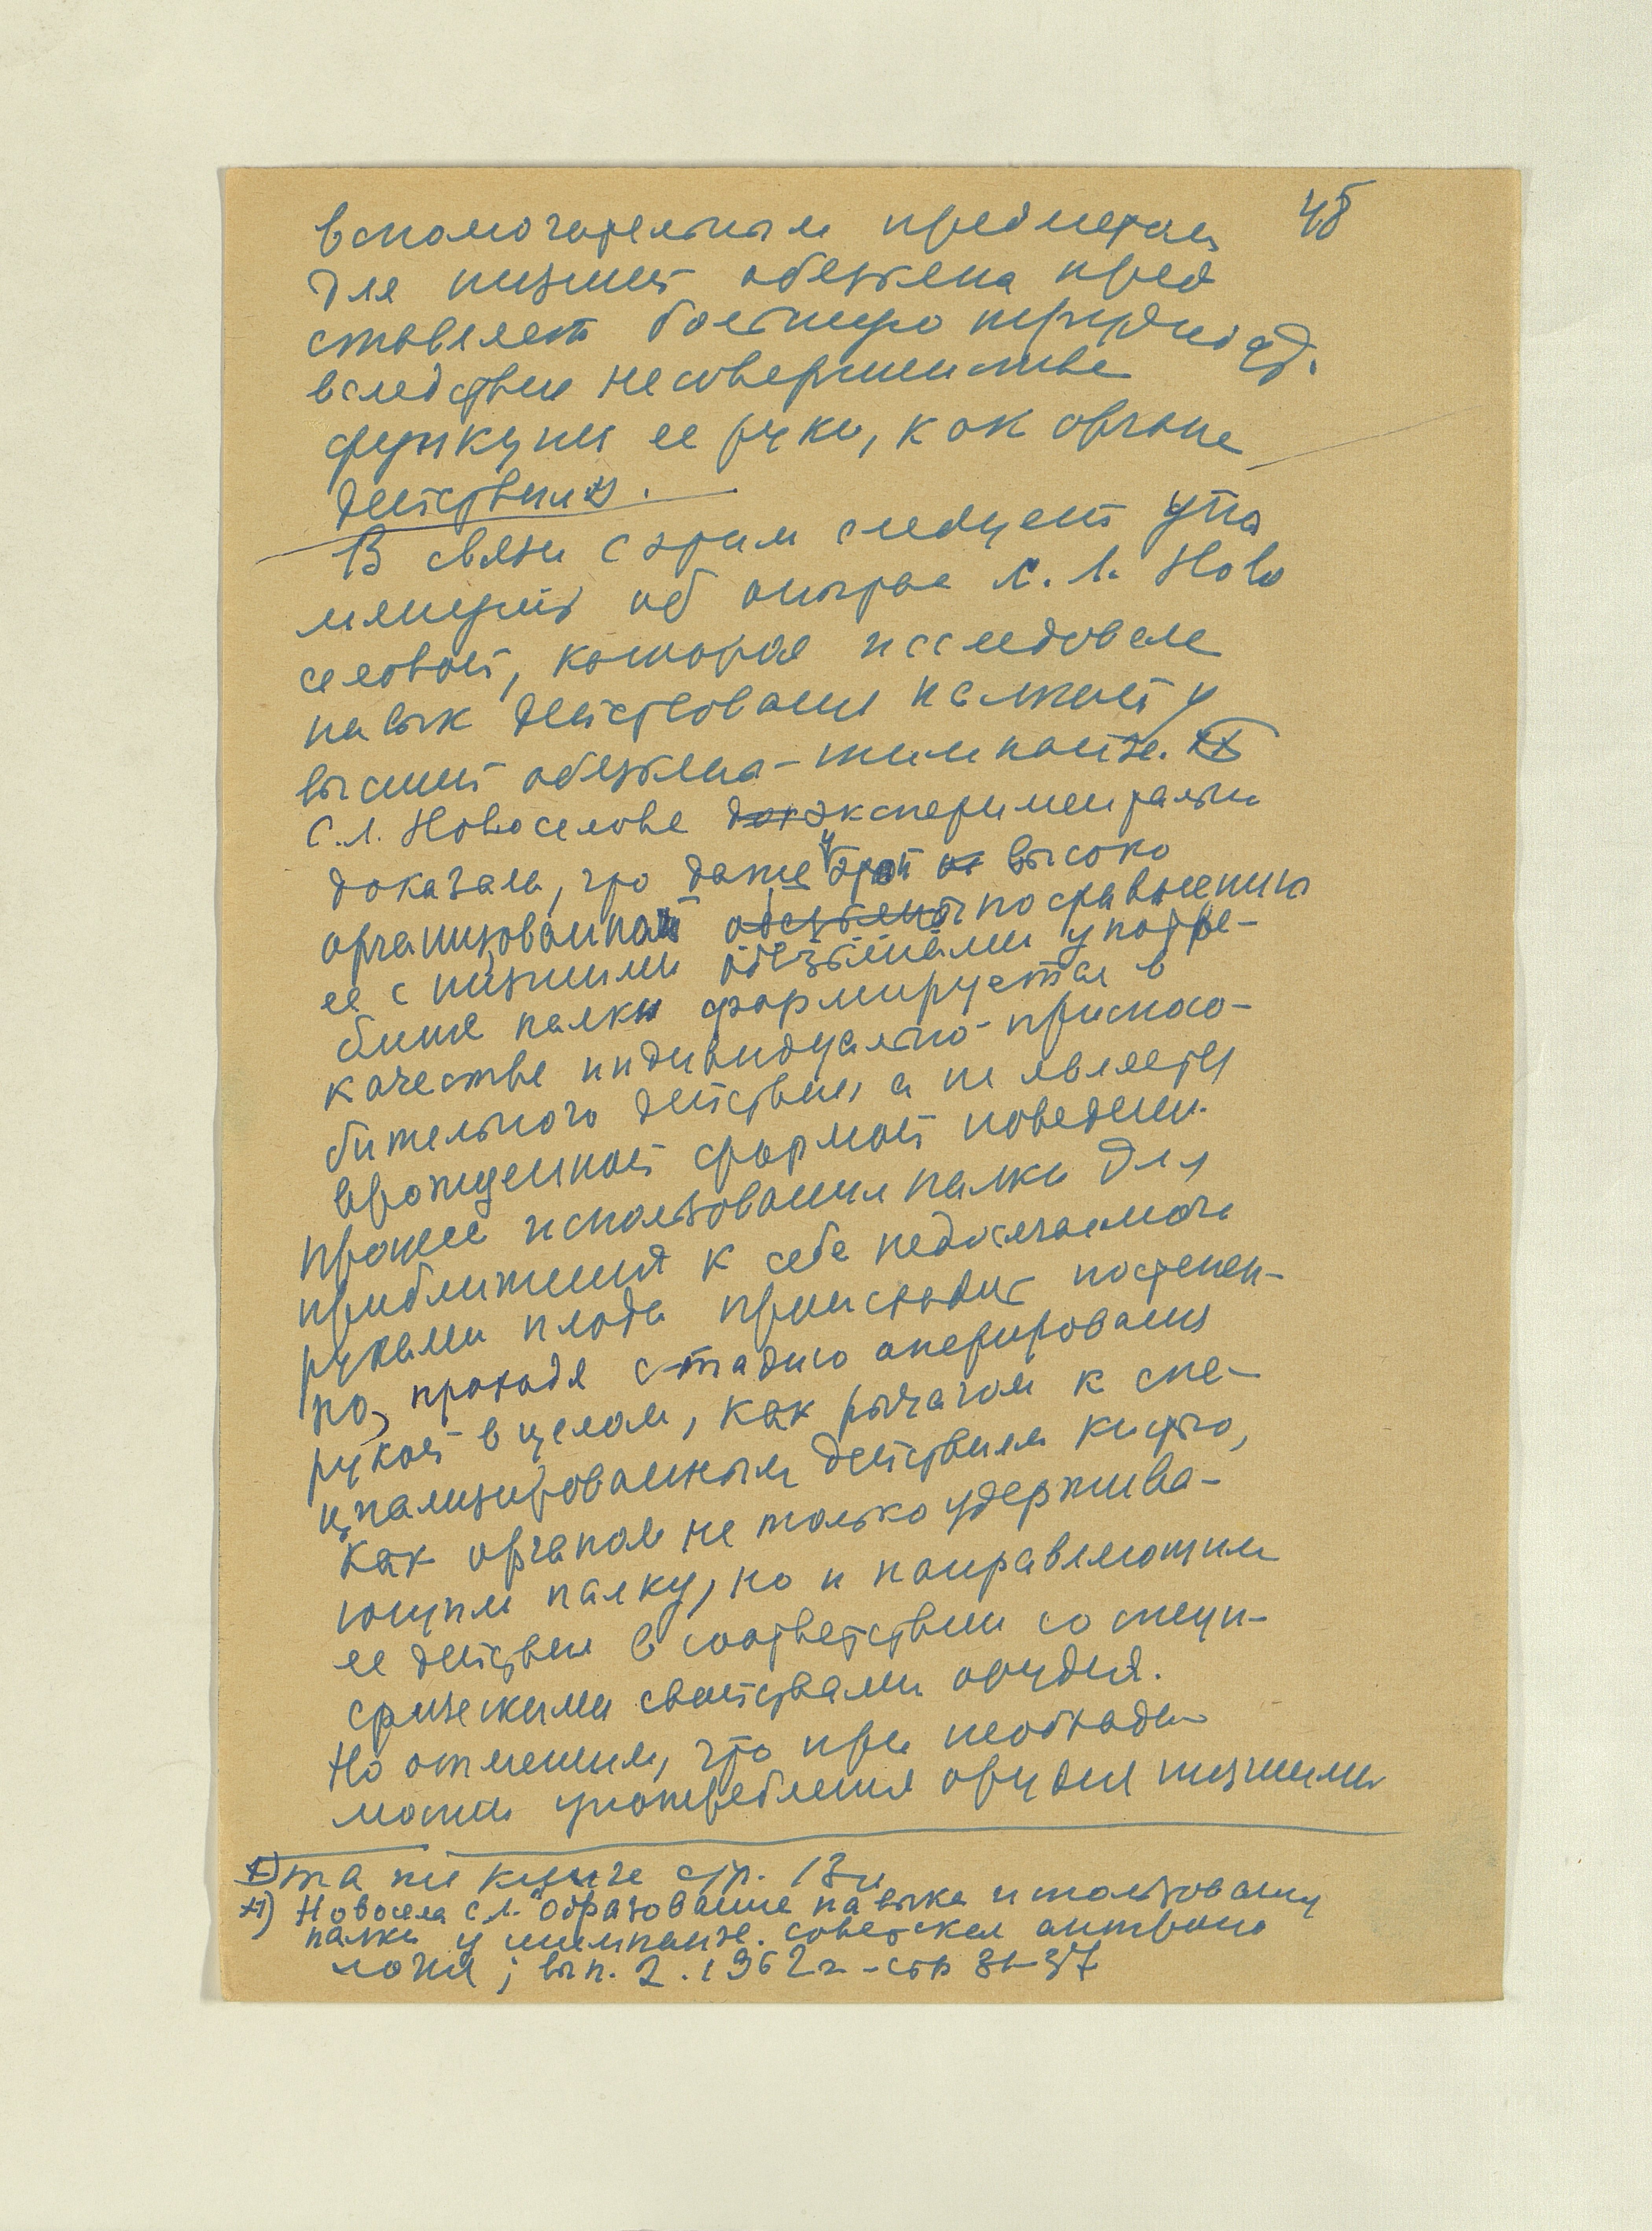 48
вспомогательным предметом
для низшей обезьяны пред
ставляет большую трудность
вследствие несовершенства
функции ее руки, как органа
действия.
В связи с этим следует упо
мянуть об опытах С. Л. Ново
селовой, которая исследовала
навык действования палкой у
высшей обезьяны - шимпанзе.
С.Л. Новоселова экспериментально
доказала, что даже у этой высоко
организованной по сравнению
ее с низшими обезьянами употре-
бление палки формируется в
качестве индивидуально-приспосо-
бительного действия, а не является
врожденной формой поведения.
Процесс использования палки для
приближения к себе недосягаемого
руками плода происходит постепен-
но, проходя стадию оперирования
рукой в целом, как рычагом к спе-
циализированным действиям кистью,
как органом не только удержива-
ющим палку, но и направляющим
ее действия в соответствии со специ-
фическими свойствами орудия.
Но отметим, что при необходи-
мости употребления орудия низшими
та же книга стр. 13
Новосела С.Л. "Образование навыка использования
палки у шимпанзе. Советская антропо
логия; вып. 2. 1962г - стр 31-37